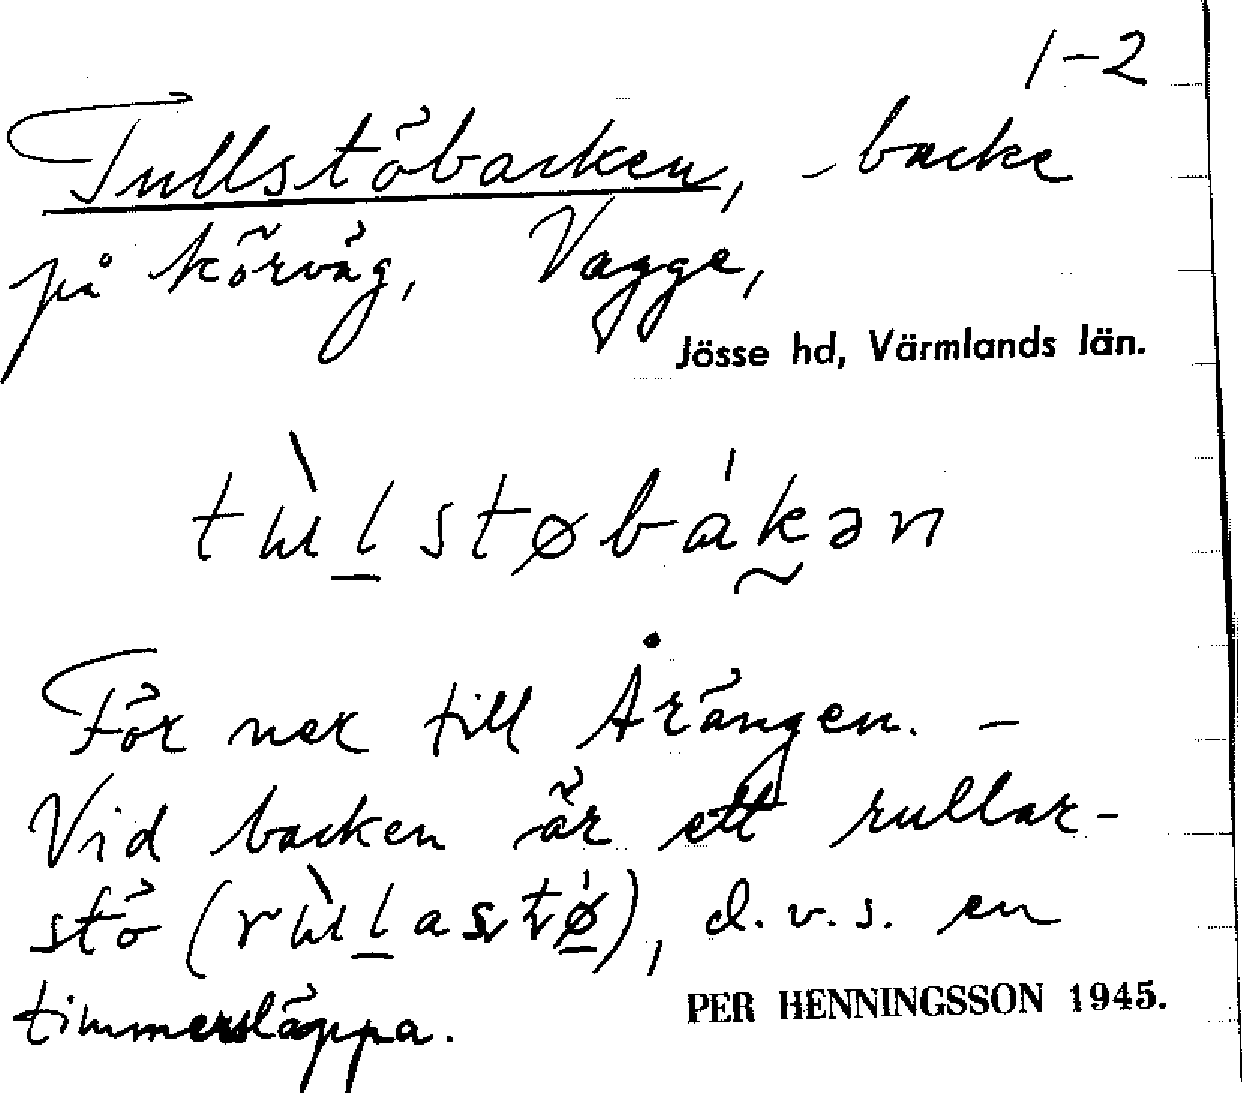 1-2
Tullstöbacken, - backe
på körväg, Vagge,
Jösse hd, Värmlands län.
tùlstøbákən
För ner till Årängen. -
Vid backen är ett rullar-
stö (rùlastǿ), d.v.s. en
timmersläppa.
PER HENNINGSSON 1945.